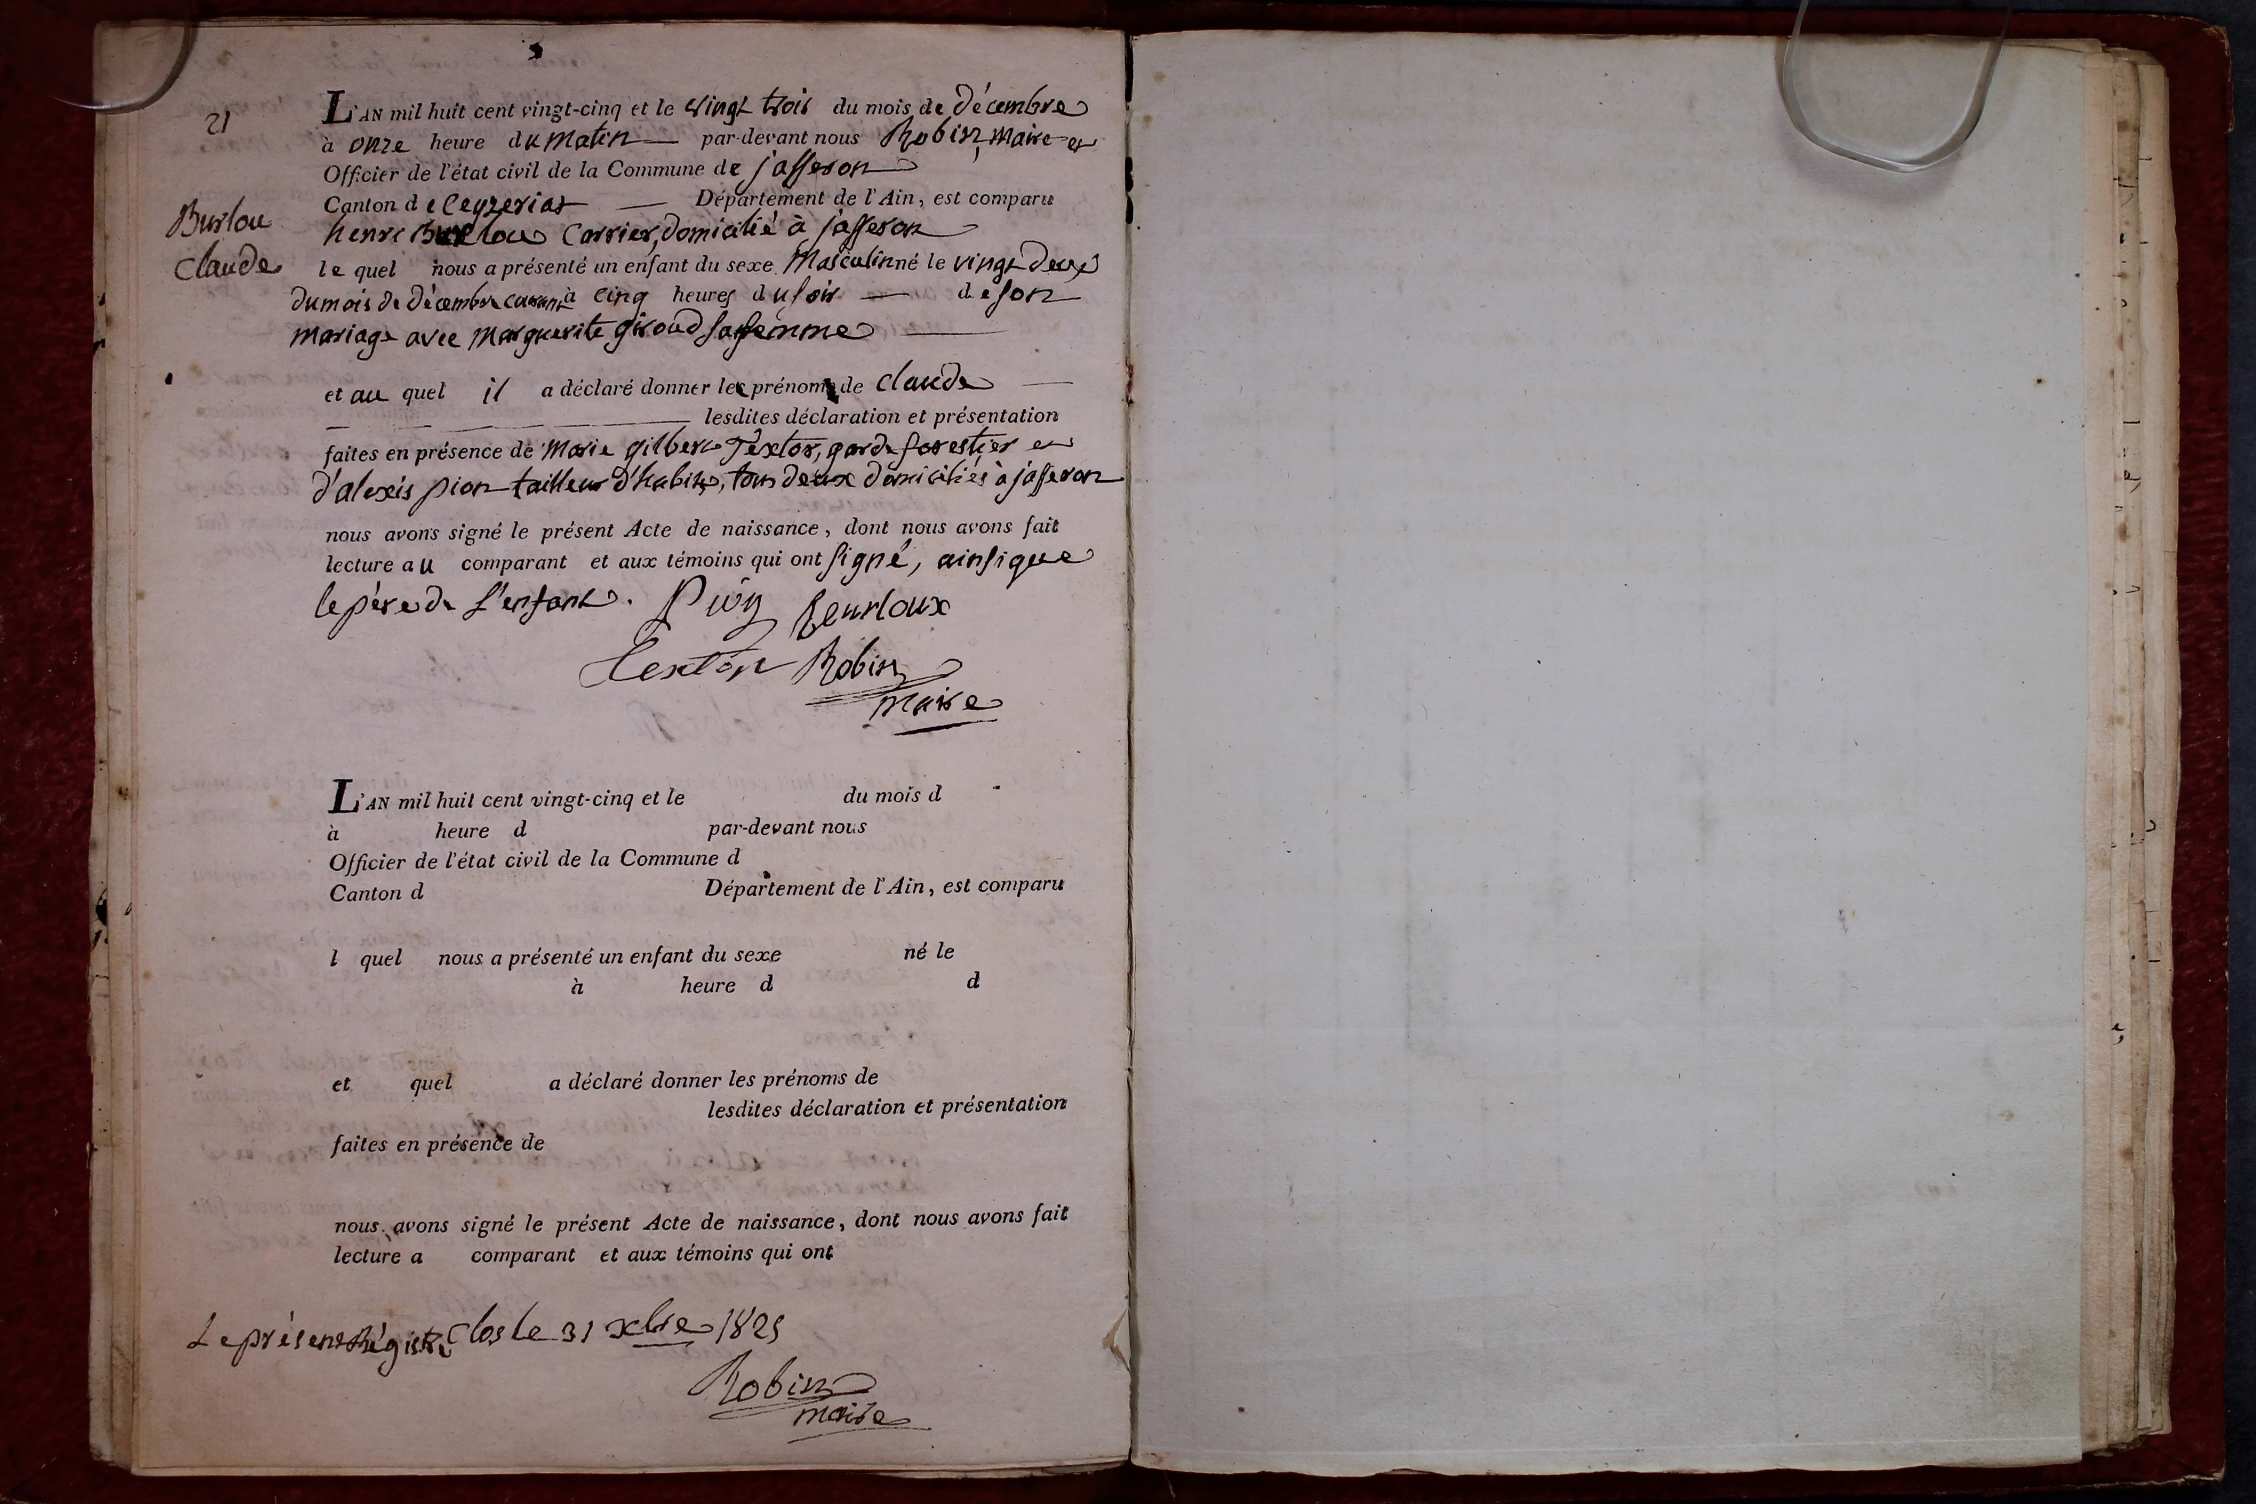 21
L'AN mil huit cent vingt-cinq et le vingt trois du mois de décembre
à onze heure du matin par-devant nous Robin, maire et
Officier de l'état civil de la Commune de jasseron
Canton de Ceyzeriat Département de l'Ain, est comparu
Burlou
Claude
henri Burlou Carrier, domicilié à jasseron
le quel nous a présenté un enfant du sexe Masculin né le vingt deux
du mois de décembre courant à cinq heures du soir de son
mariage avec Marguerite giroud sa femme
et au quel il a déclaré donner le prénom de claude
lesdites déclaration et présentation
faites en présence de Marie gilbert Textor, garde forestier et
d'alexis pion tailleur d'habits, tous deux domiciliés à jasseron
nous avons signé le présent Acte de naissance, dont nous avons fait
lecture au comparant et aux témoins qui ont signé, ainsi que
le père de l'enfant. Pion Beurloux
Textor Robin
maire
L'AN mil huit cent vingt-cinq et le du mois d
à heure d par-devant nous
Officier de l'état civil de la Commune d
Canton d Département de l'Ain, est comparu
l quel nous a présenté un enfant du sexe né le
à heure d d
et quel a déclaré donner les prénoms de
lesdites déclaration et présentation
faites en présence de
nous avons signé le présent Acte de naissance, dont nous avons fait
lecture a comparant et aux témoins qui ont
Le présent Régistre Clos le 31 xbre 1825
Robin
maire